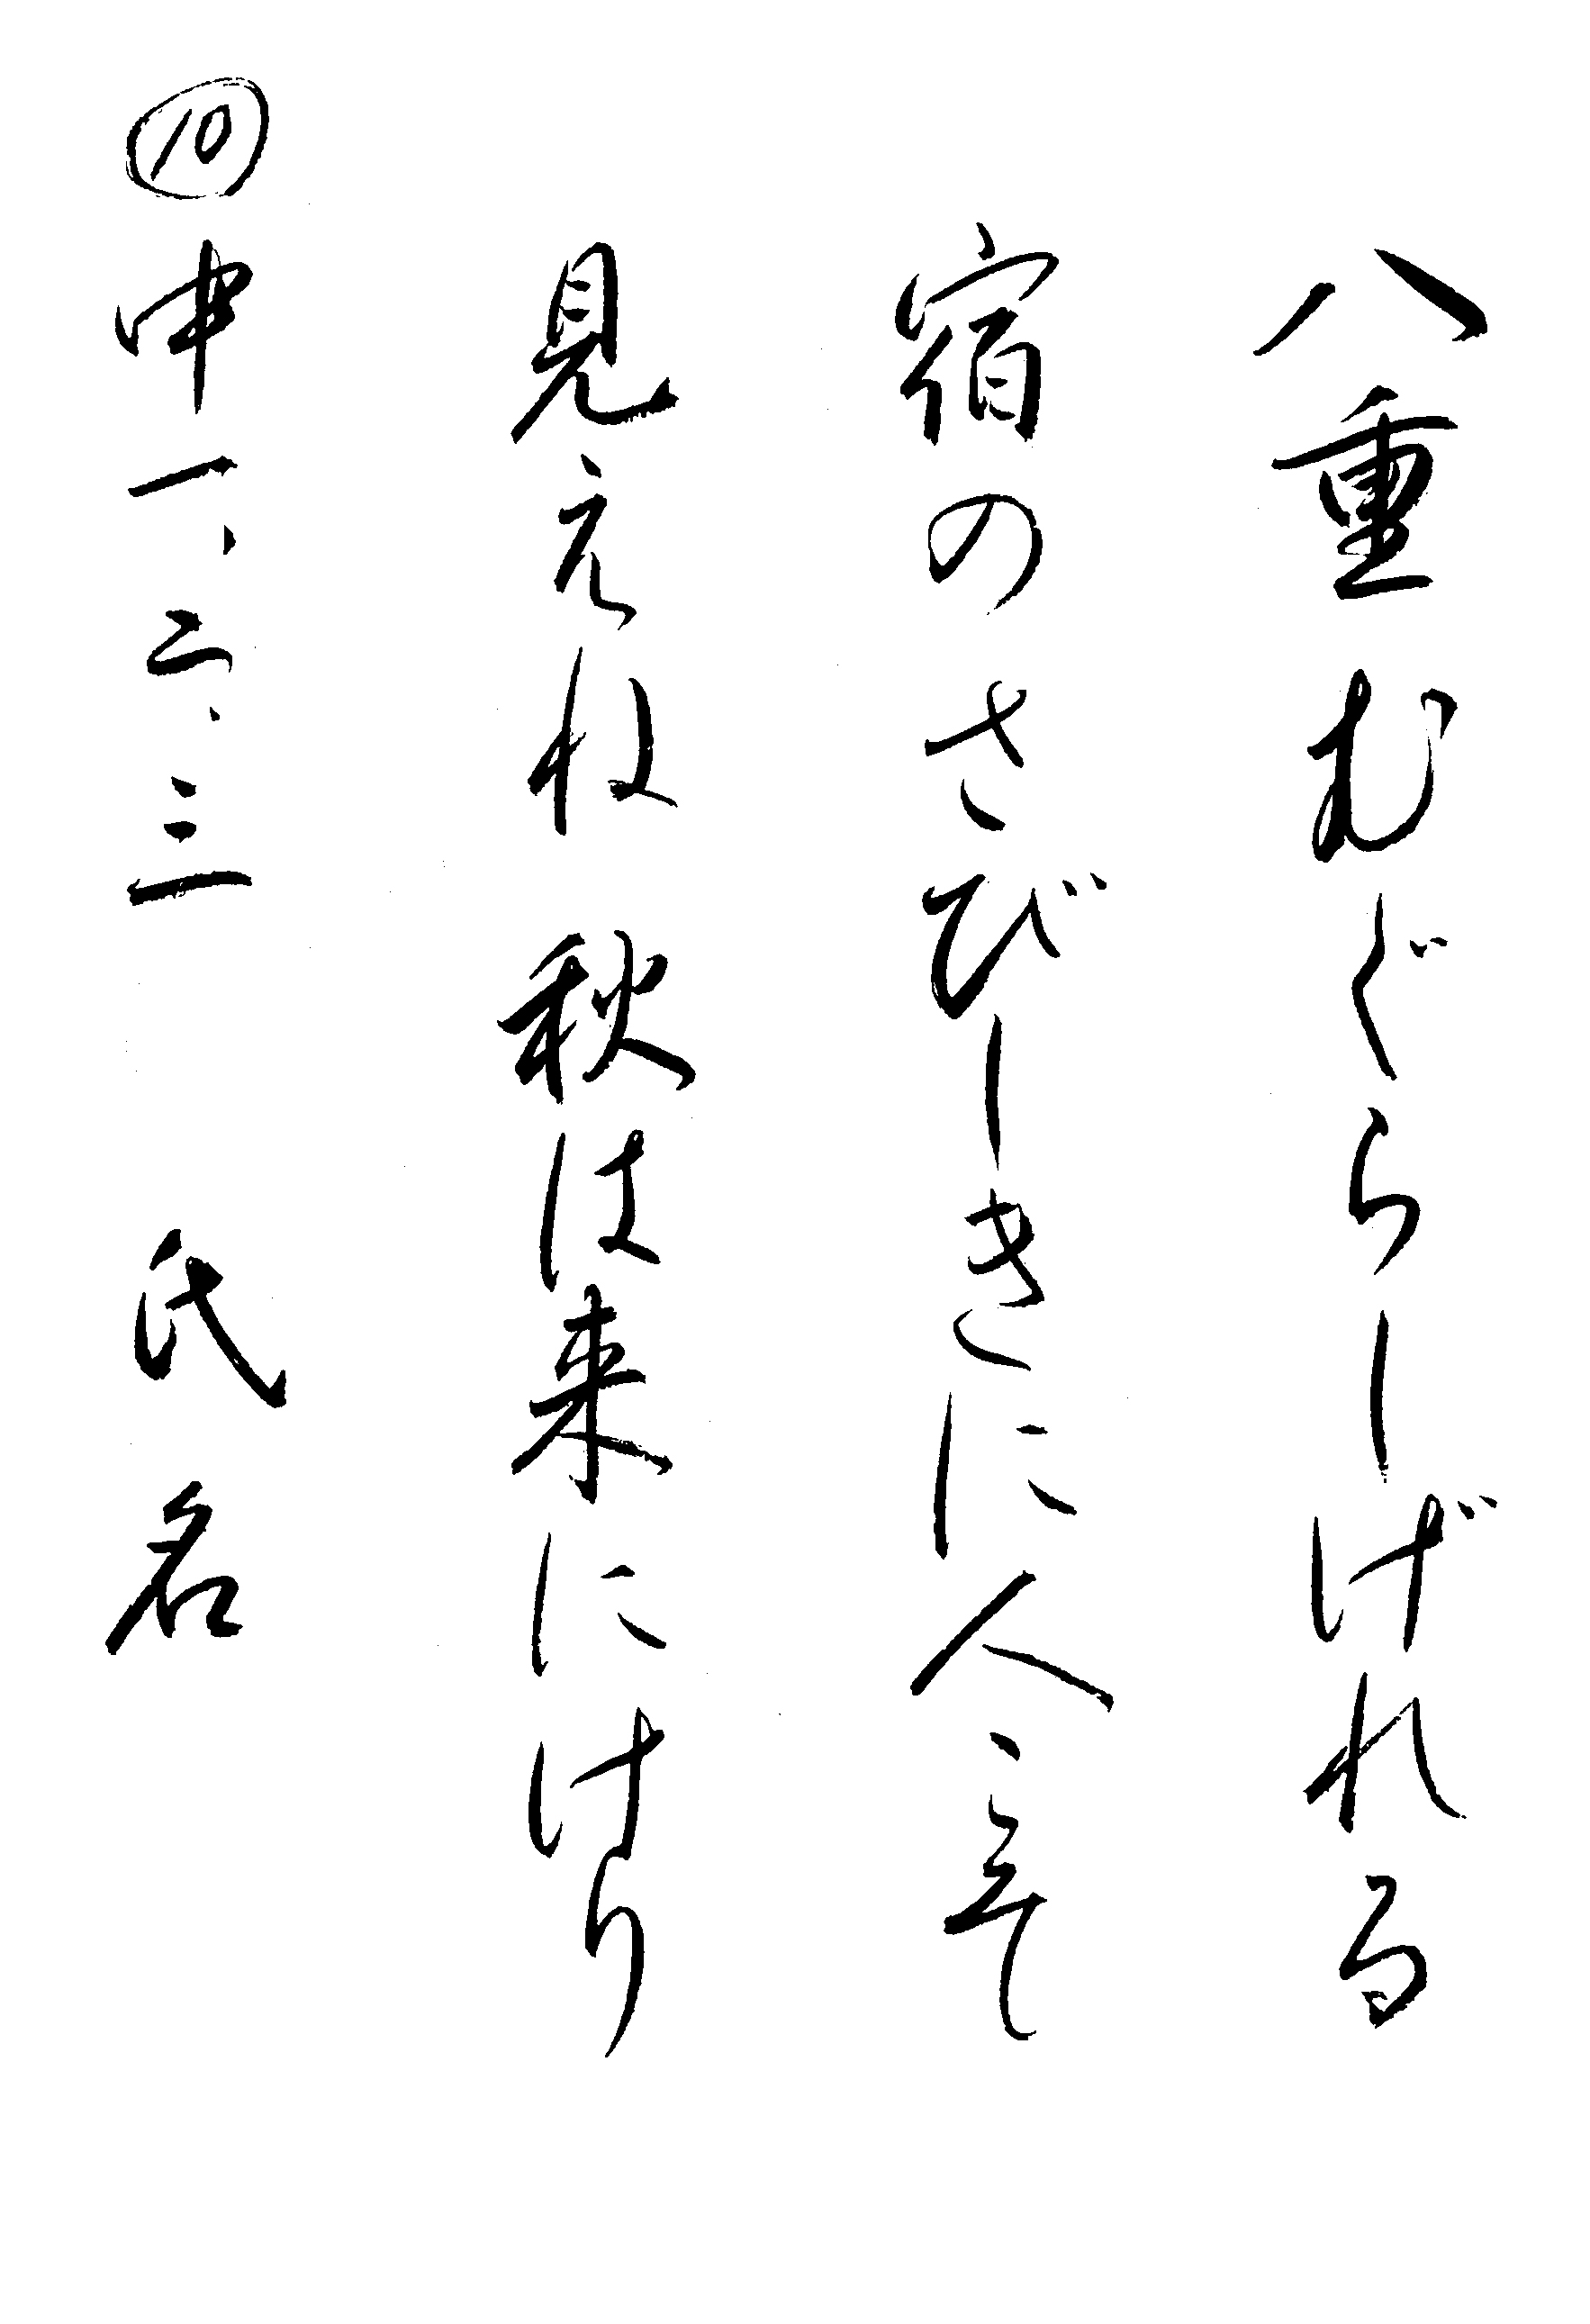 八重むぐらしげれる
宿のさびしきに人こそ
見えね秋は来にけり
⑩中一、二、三 氏名